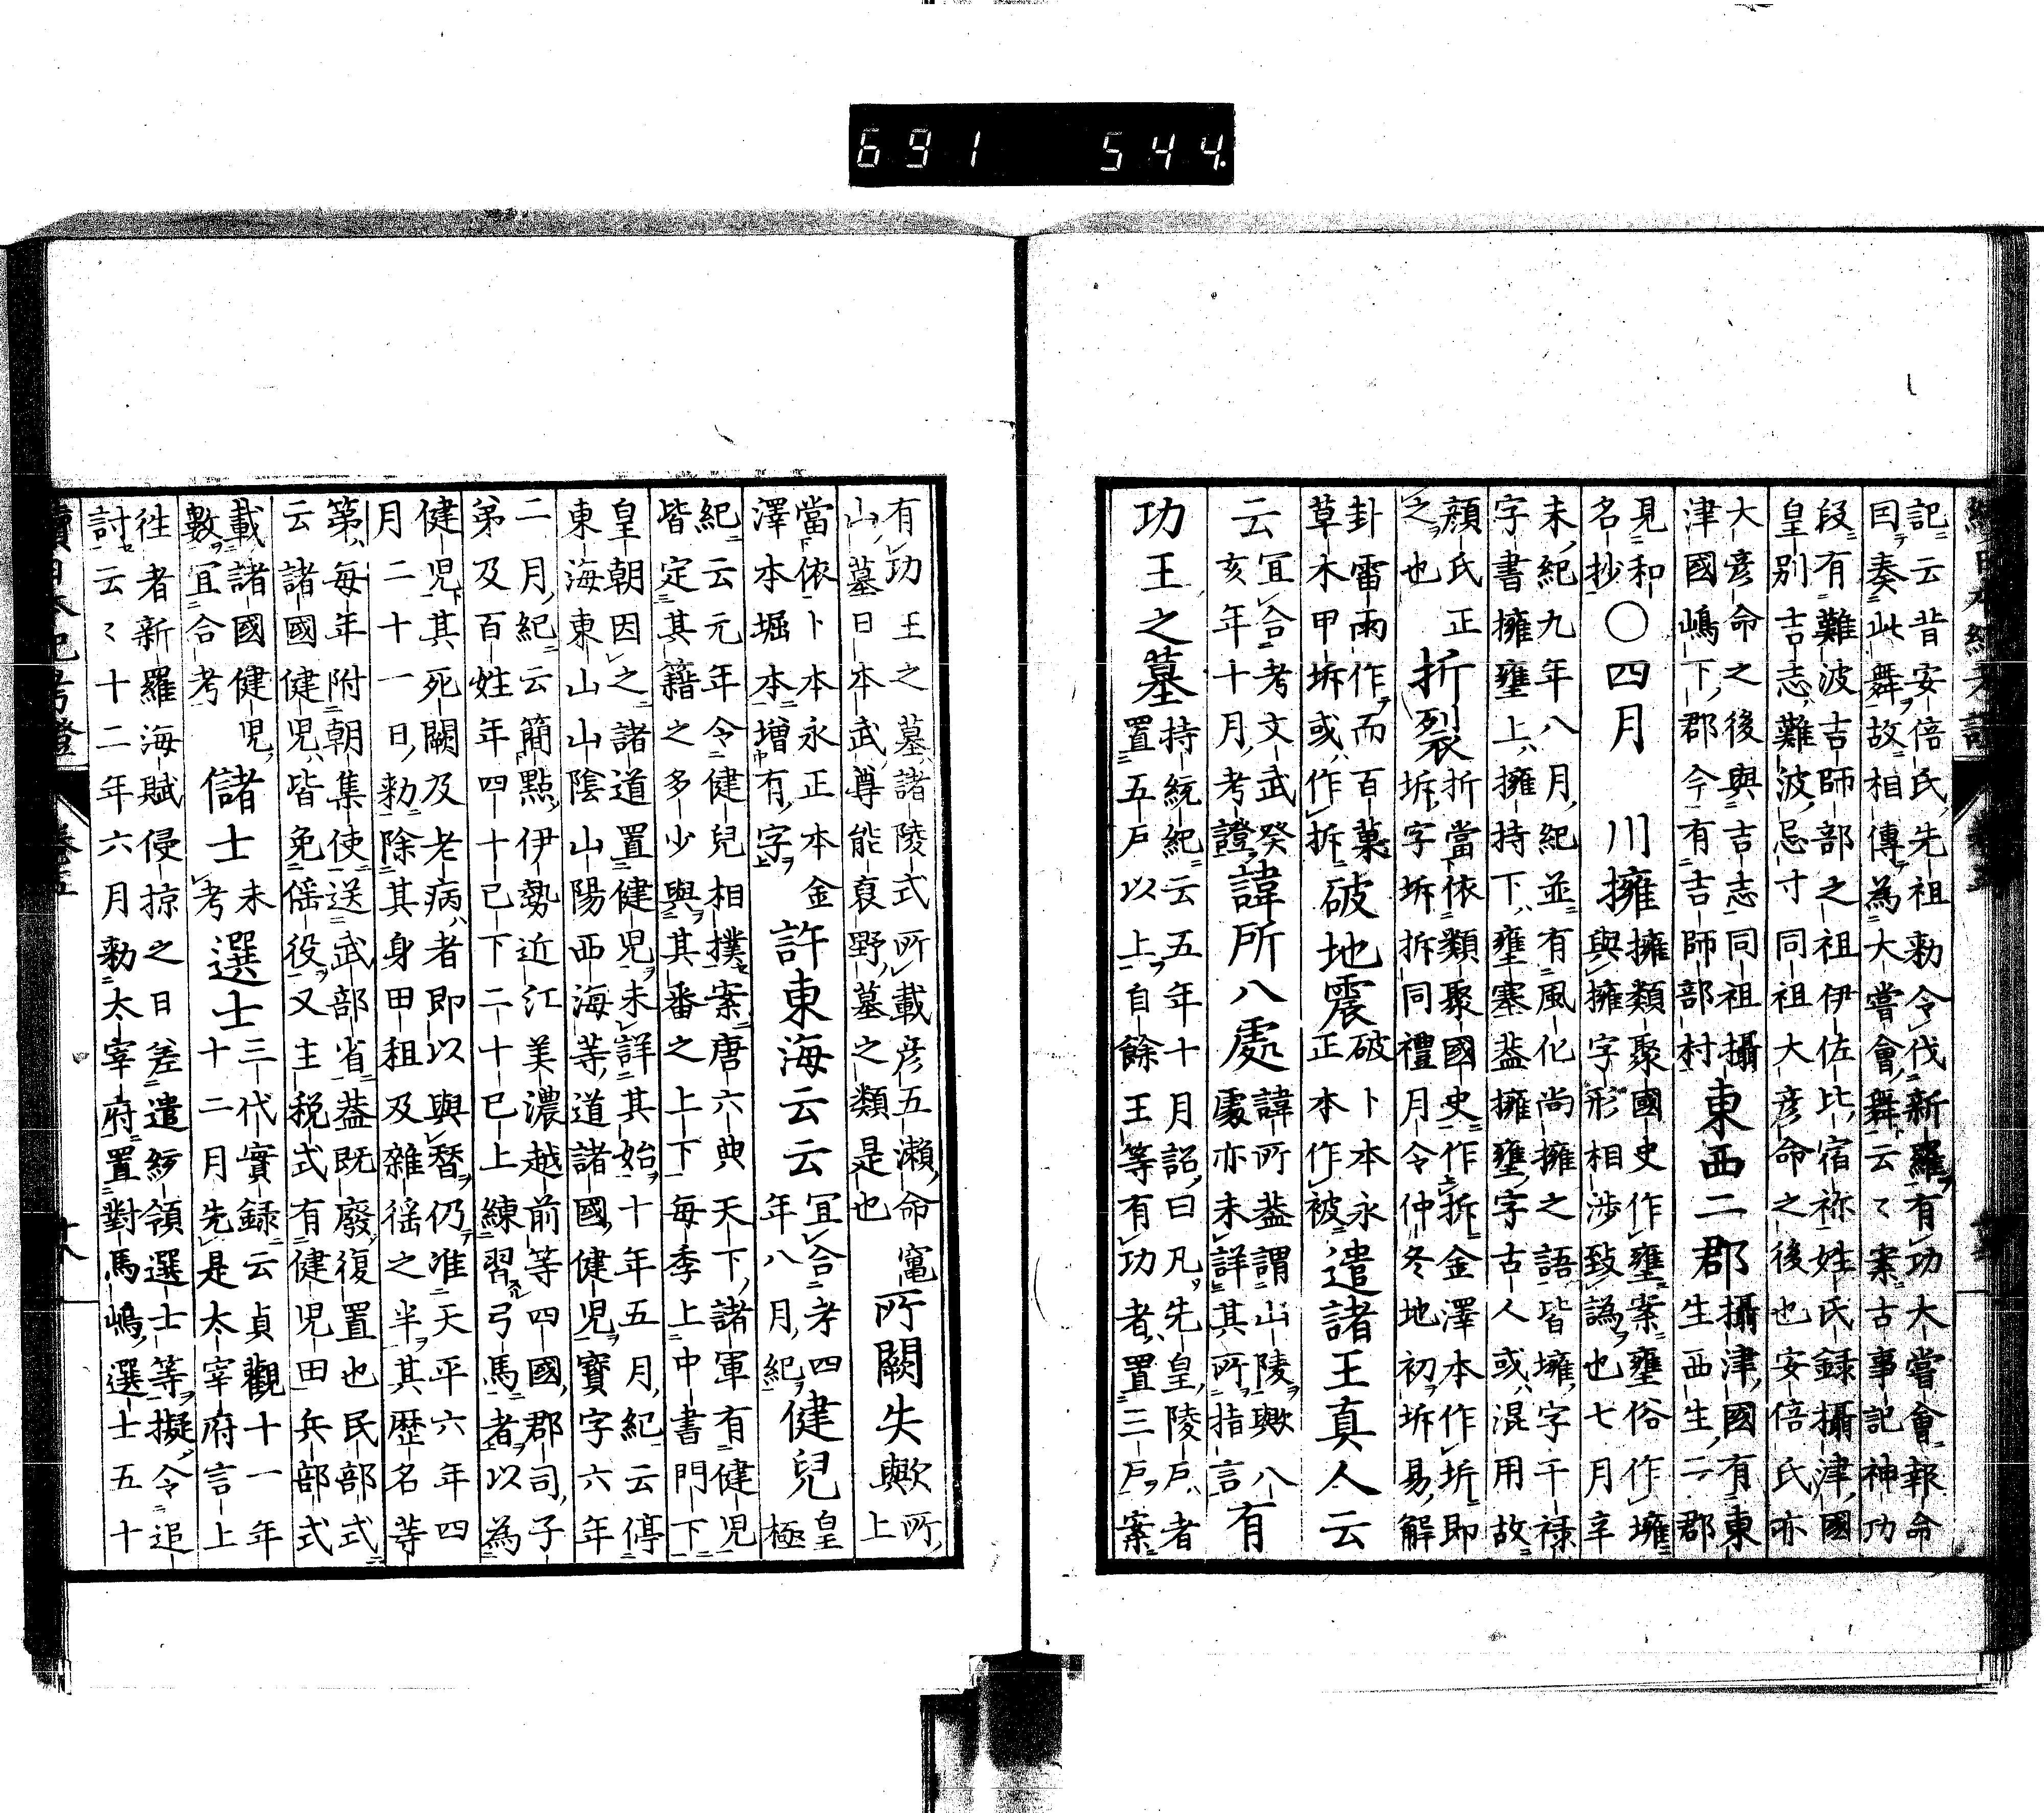 記云昔安倍氏先祖勅令伐新羅有功大嘗會報命
曰奏此舞故相傳為大嘗會舞云〻案古事記神功
段有難波吉師部之祖伊佐比宿祢姓氏録攝津國
皇別吉志難波忌寸同祖大彦命之後也安倍氏亦
大彦命之後與吉志同祖攝
津國嶋下郡今有吉師部村
東西二郡
攝津國有東
生西生二郡
見和
名抄
〇四月 川擁
擁類聚國史作壅案壅俗作擁
與擁字形相渉致譌也七月辛
未紀九年八月紀並有風化尚擁之語皆擁字干禄
字書擁壅上擁持下壅塞葢擁壅字古人或混用故
顔氏正
之也
折裂
折當依類聚國史作拆金澤本作坼即
坼字坼拆同禮月令仲冬地初坼易解
卦雷雨作而百菓
草木甲坼或作拆
破地震
破卜本永
正本作被
遣諸王真人云
云
宜合考文武癸
亥年十月考證
諱所八處
諱所葢謂山陵歟八
處亦未詳其所指言
有
功王之墓
持統紀云五年十月詔曰凡先皇陵戸者
置五戸以上自餘王等有功者置三戸案
有功王之墓諸陵式所載彦五瀬命竃
山墓日本武尊能裒野墓之類是也
所闕失歟
所
上
當依卜本永正本金
澤本堀本増有字
許東海云云
宜合考四
年八月紀
健兒
皇
極
紀云元年令健兒相撲案唐六典天下諸軍有健児
皆定其籍之多少與其番之上下每季上中書門下
皇朝因之諸道置健児未詳其始十年五月紀云停
東海東山山陰山陽西海等道諸國健児寳字六年
二月紀云簡點伊勢近江美濃越前等四國郡司子
弟及百姓年四十已下二十已上練習弓馬者以為
健児其死闕及老病者即以與替仍准天平六年四
月二十一日勅除其身田租及雜徭之半其歴名等
第每年附朝集使送武部省葢既廢復置也民部式
云諸國健児皆免傜役又主税式有健児田兵部式
載諸國健児
數宜合考
儲士
未
考
選士
三代實録云貞觀十一年
十二月先是太宰府言上
往者新羅海賊侵掠之日差遣領選士等擬令追
討云〻十二年六月勅太宰府置對馬嶋選士五十
續日本紀考證 卷五 十八
691 544.